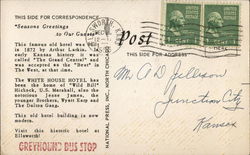 THIS SIDE FOR CORRESPONDENCE
"Seasons Greetings
to Our Guests"
This famous old hotel was built
in 1872 by Arthur Larkin. In
early Kansas history it was
called "The Grand Central" and
was accepted as the "Best" in
The West, at that time.
The WHITE HOUSE HOTEL has
been the home of "Wild Bill"
Hickock, U.S. Marshall, also the
notorious Jesse James, the
younger Brothers, Wyatt Earp and
The Daltons.
This old hotel building is now
modern.
Visit this historic hotel at
Ellsworth!
GREYHOUND BUS STOP
NATIONAL PRESS, INC. NORTH CHICAGO
Post
THIS SIDE FOR ADDRESS
Mr A D Jellison
Junction City
Kansas